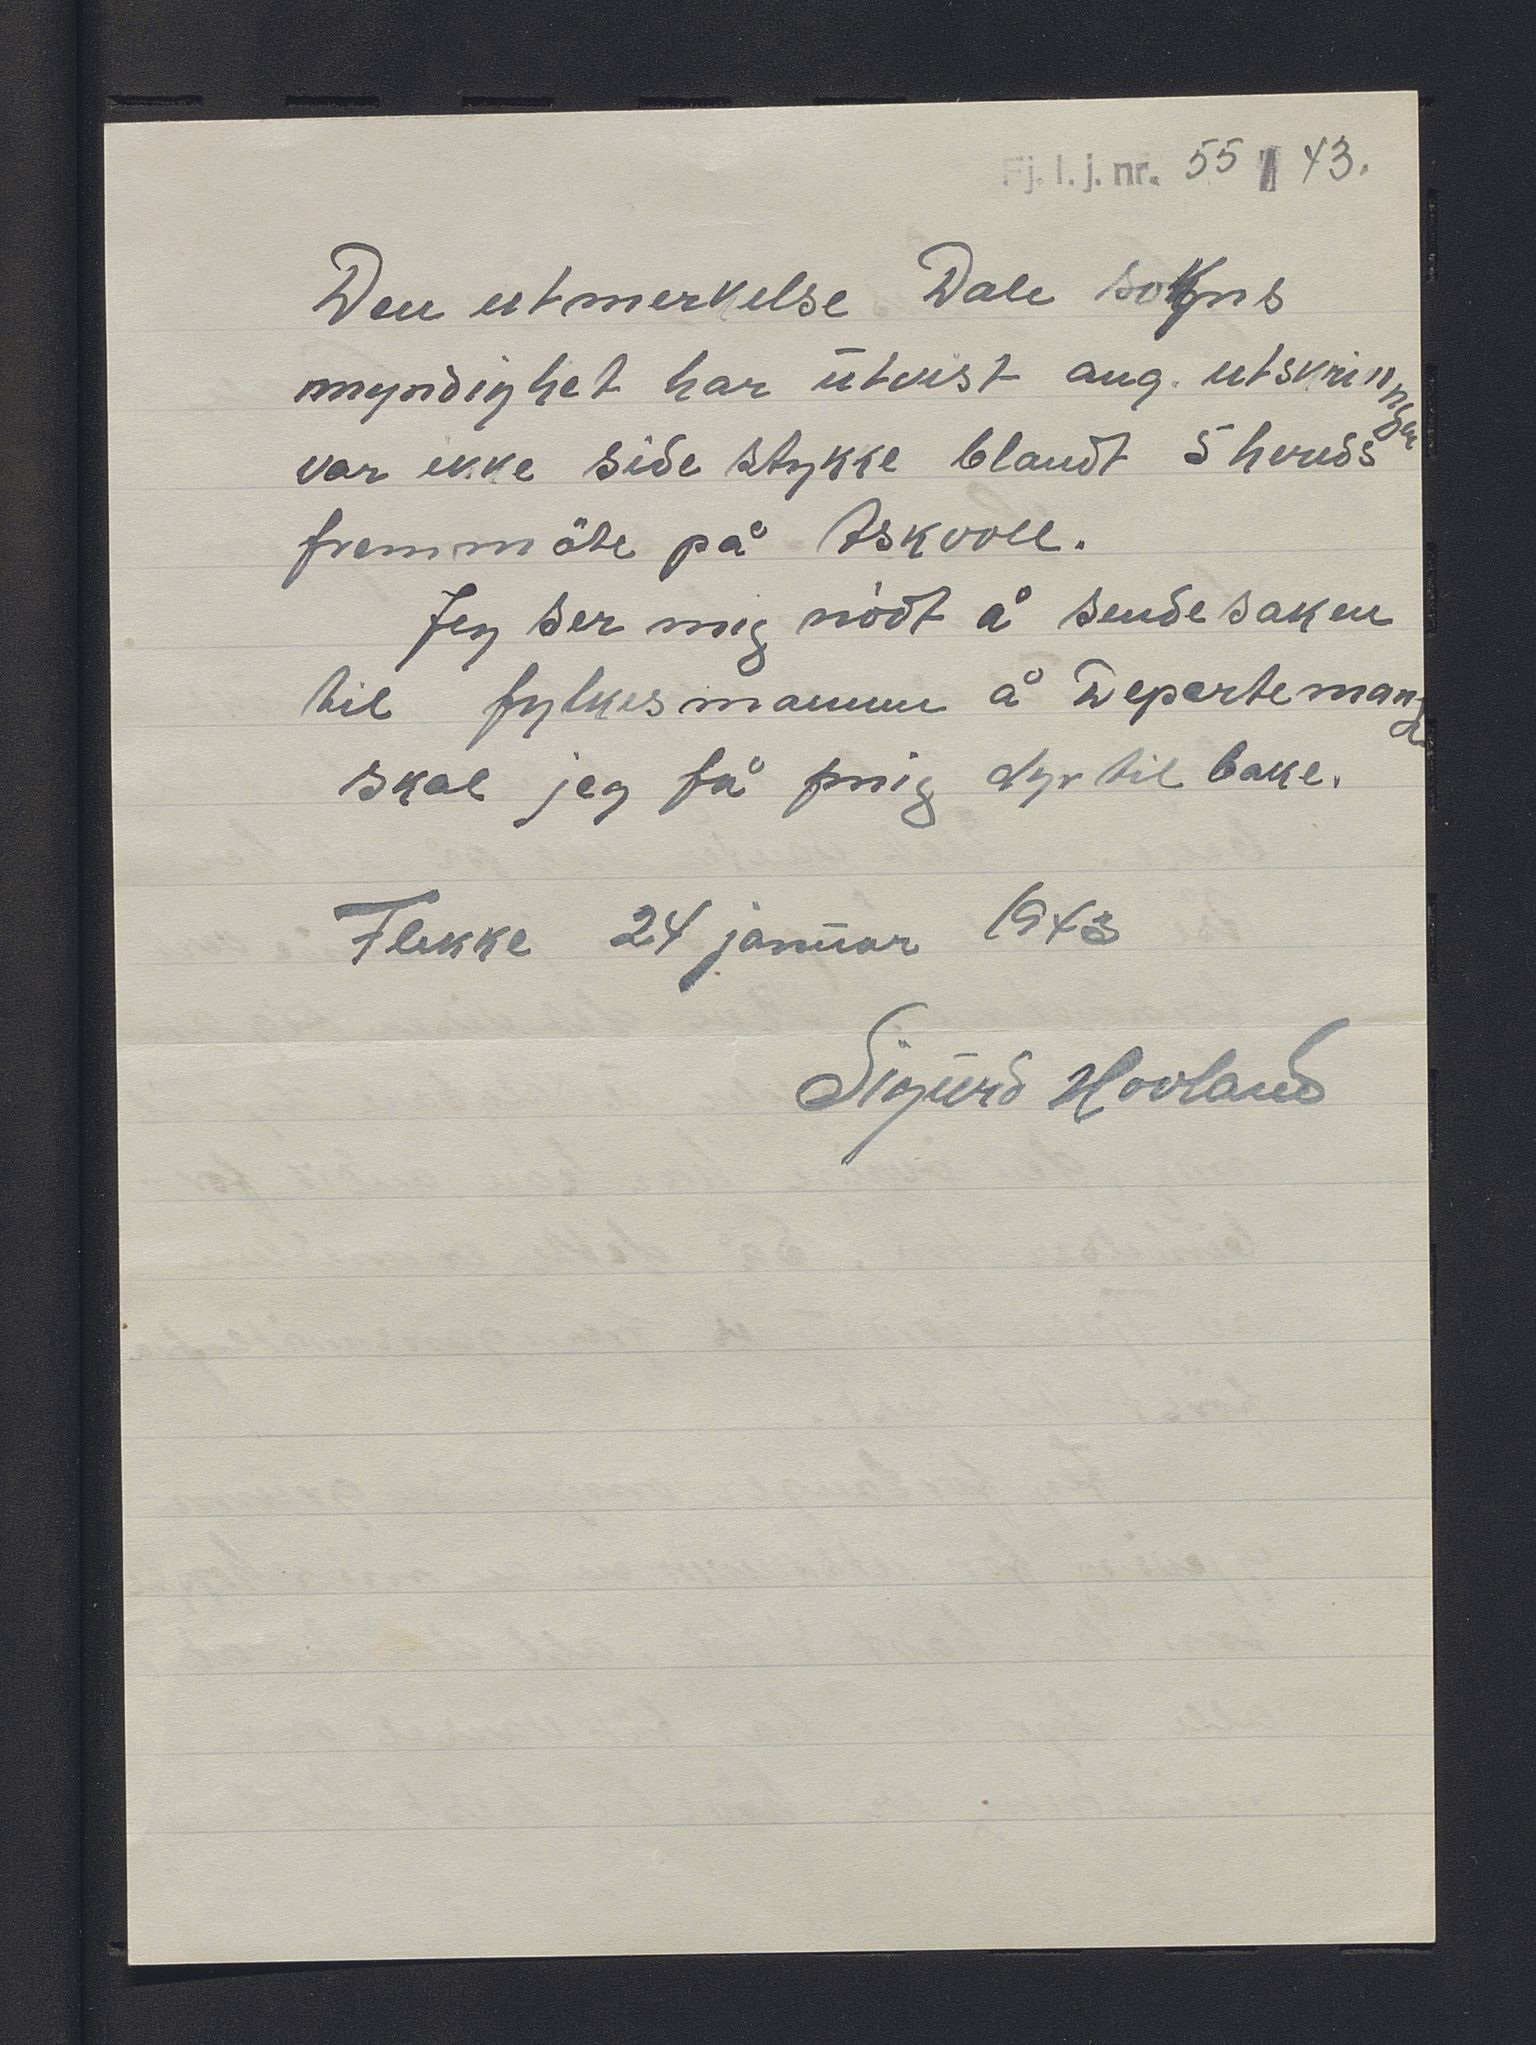 Fj. l. j. nr. 55 / 43.
Den utmerkelse Dale sokns
myndighet har ūtvist ang. utskrinngen
var ikke side stykke blandt 5 heruds
fremmöte på Askvoll.
Jeg ser mig nödt å sende saken
til fylkesmannen å Departemang
skal jeg få mig dyr til bake.
Flekke 24 janūar 1943
Sigūrd Hovland